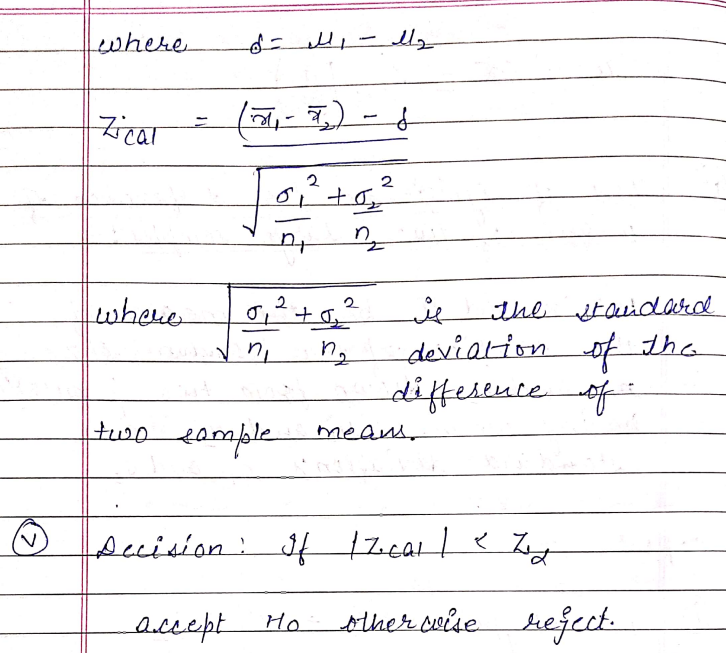 where δ = μ₁ - μ₂
Zcal = (x̄₁ - x̄₂) - δ
√(σ₁²/n₁ + σ₂²/n₂)
where √(σ₁²/n₁ + σ₂²/n₂) is the standard
deviation of the
difference of
two sample means.
(v) Decision : If |Zcal| < Zα
accept Ho otherwise reject.